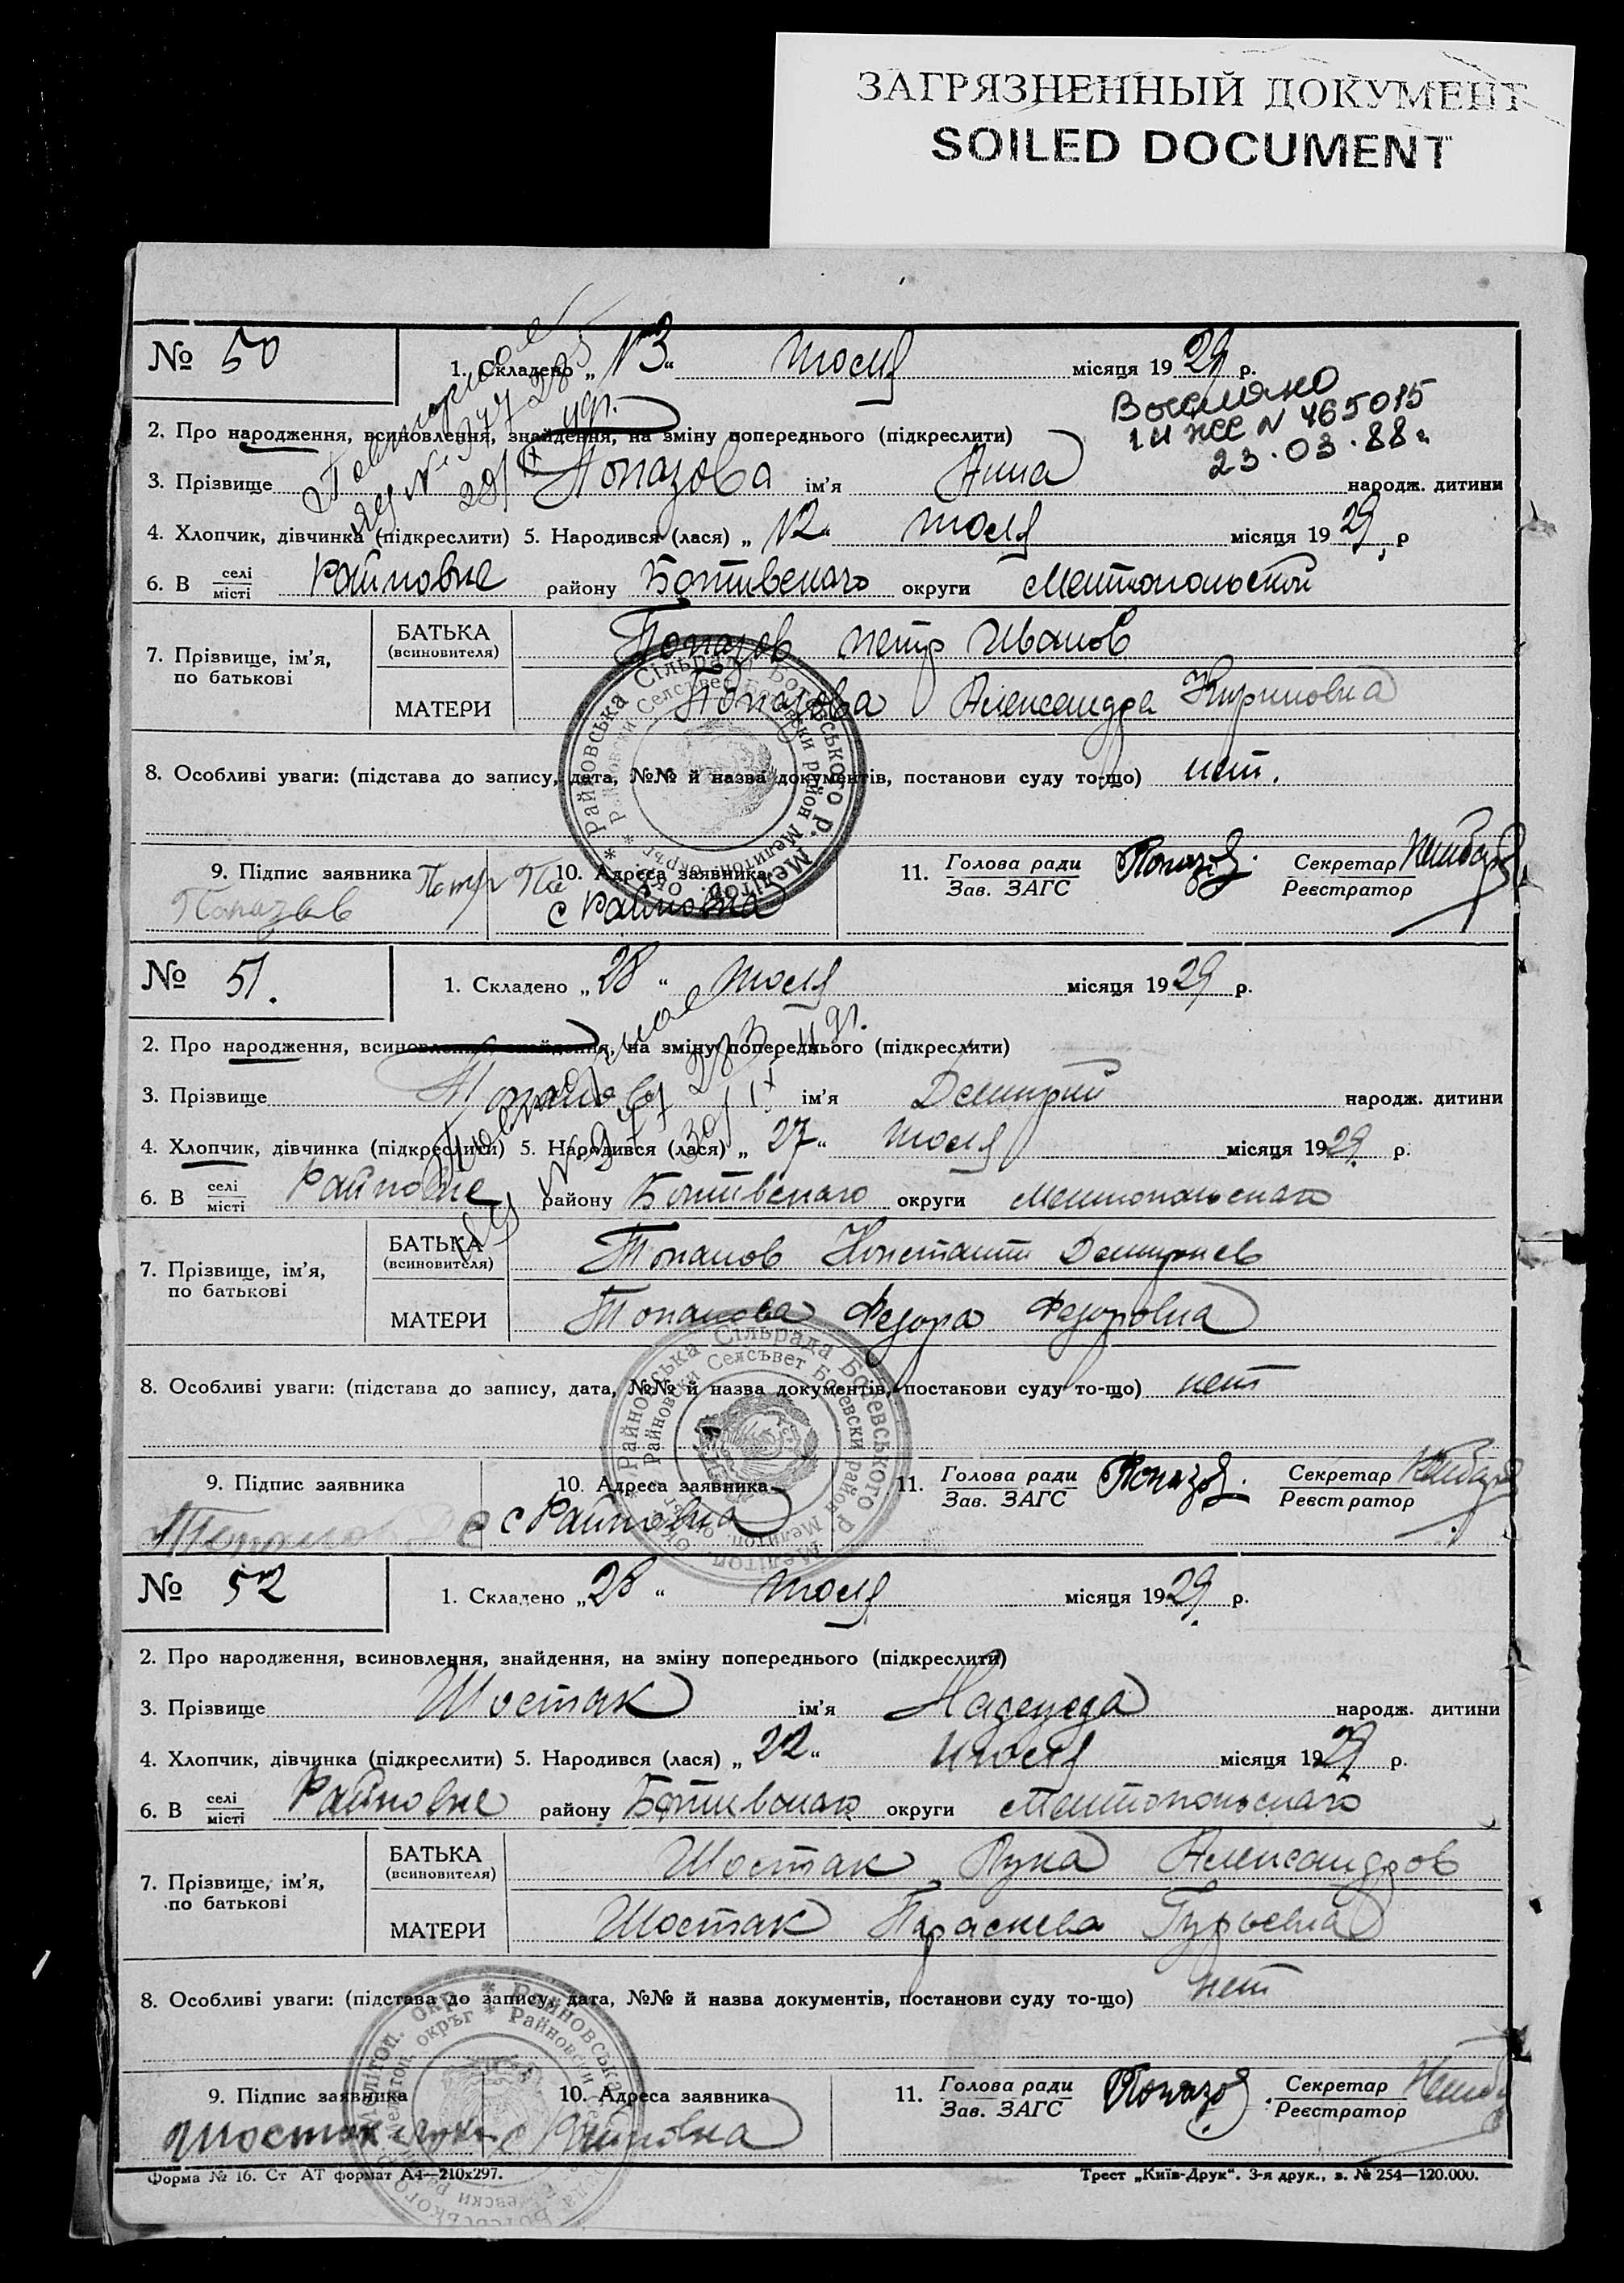 ЗАГРЯЗНЕННЫЙ ДОКУМЕНТ
SOILED DOCUMENT
№ 50
1. Складено „13“ июля місяця 1929 р.
Повторное
2. Про народження, всиновлення, знайдення, на зміну попереднього (підкреслити)
Выслано
23.03.88 г
3. Прізвище Попазова ім'я Анна народж. дитини
4. Хлопчик, дівчинка (підкреслити) 5. Народився (лася) „12“ июля місяця 1929 р
6. В селі місті Райновке району Ботивского округи Мелитопольской
7. Прізвище, ім'я, по батькові
БАТЬКА (всиновителя) Попазов Петр Иванов
МАТЕРИ Попазова Александра Кириловна
8. Особливі уваги: (підстава до запису, дата, №№ й назва документів, постанови суду то-що) нет.
9. Підпис заявника Петр Попазов
10. Адреса заявника с Райновка
11. Голова ради Зав. ЗАГС Попазов Секретар Реєстратор
* Райновська Сільрада Ботевського р. Мелітоп. окр.
* Райновски Селсъвет Ботевски район Мелитоп. окръг
№ 51.
1. Складено „28“ июля місяця 1929 р.
2. Про народження, всиновлення, знайдення, на зміну попереднього (підкреслити)
3. Прізвище Топалов ім'я Демитрий народж. дитини
4. Хлопчик, дівчинка (підкреслити) 5. Народився (лася) „27“ июля місяця 1929 р.
6. В селі місті Райновке району Ботивского округи Мелитопольского
7. Прізвище, ім'я, по батькові
БАТЬКА (всиновителя) Топалов Константин Демитриев
МАТЕРИ Топалова Федора Федоровна
8. Особливі уваги: (підстава до запису, дата, №№ й назва документів, постанови суду то-що) нет
9. Підпис заявника Топалов
10. Адреса заявника с Райновка
11. Голова ради Зав. ЗАГС Попазов. Секретар Реєстратор
* Райновська Сільрада Ботевського р. Мелітоп. окр.
* Райновски Селсъвет Ботевски район Мелитоп. окръг
№ 52
1. Складено „28“ июля місяця 1929 р.
2. Про народження, всиновлення, знайдення, на зміну попереднього (підкреслити)
3. Прізвище Шостак ім'я Надежда народж. дитини
4. Хлопчик, дівчинка (підкреслити) 5. Народився (лася) „22“ июля місяця 1929 р.
6. В селі місті Райновке району Ботивского округи Мелитопольского
7. Прізвище, ім'я, по батькові
БАТЬКА (всиновителя) Шостак Лука Александров
МАТЕРИ Шостак Параскева Гурьевна
8. Особливі уваги: (підстава до запису, дата, №№ й назва документів, постанови суду то-що) нет
9. Підпис заявника Шостак Лука
10. Адреса заявника с Райновка
11. Голова ради Зав. ЗАГС Попазов. Секретар Реєстратор
Форма № 16. Ст АТ формат А4—210х297.
Трест „Київ-Друк“. 3-я друк., з. № 254—120.000.